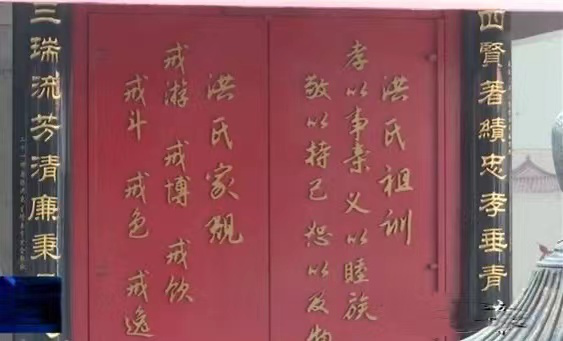 四賢著績忠孝垂青
洪氏祖訓
孝以事亲 义以睦族
敬以持己 恕以及物
洪氏家規
戒游 戒博 戒饮
戒斗 戒色 戒逸
三瑞流芳清廉秉